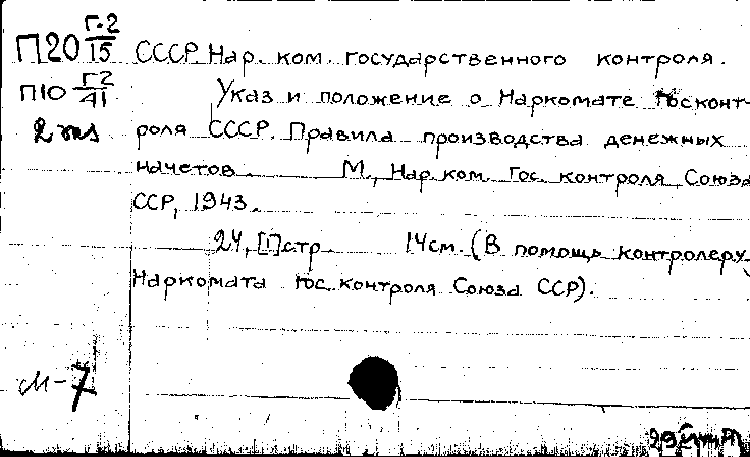 П20 Г-2/15 СССР. Нар. ком. государственного контроля.
П10 Г2/41 Указ и положение о Наркомате Госконт-
2 экз роля СССР. Правила производства денежных
начетов. М., Нар. ком. Гос. контроля Союза
ССР, 1943.
24, [1] стр. 14 см. (В помощь контролеру
Наркомата Гос. контроля Союза ССР).
М-7